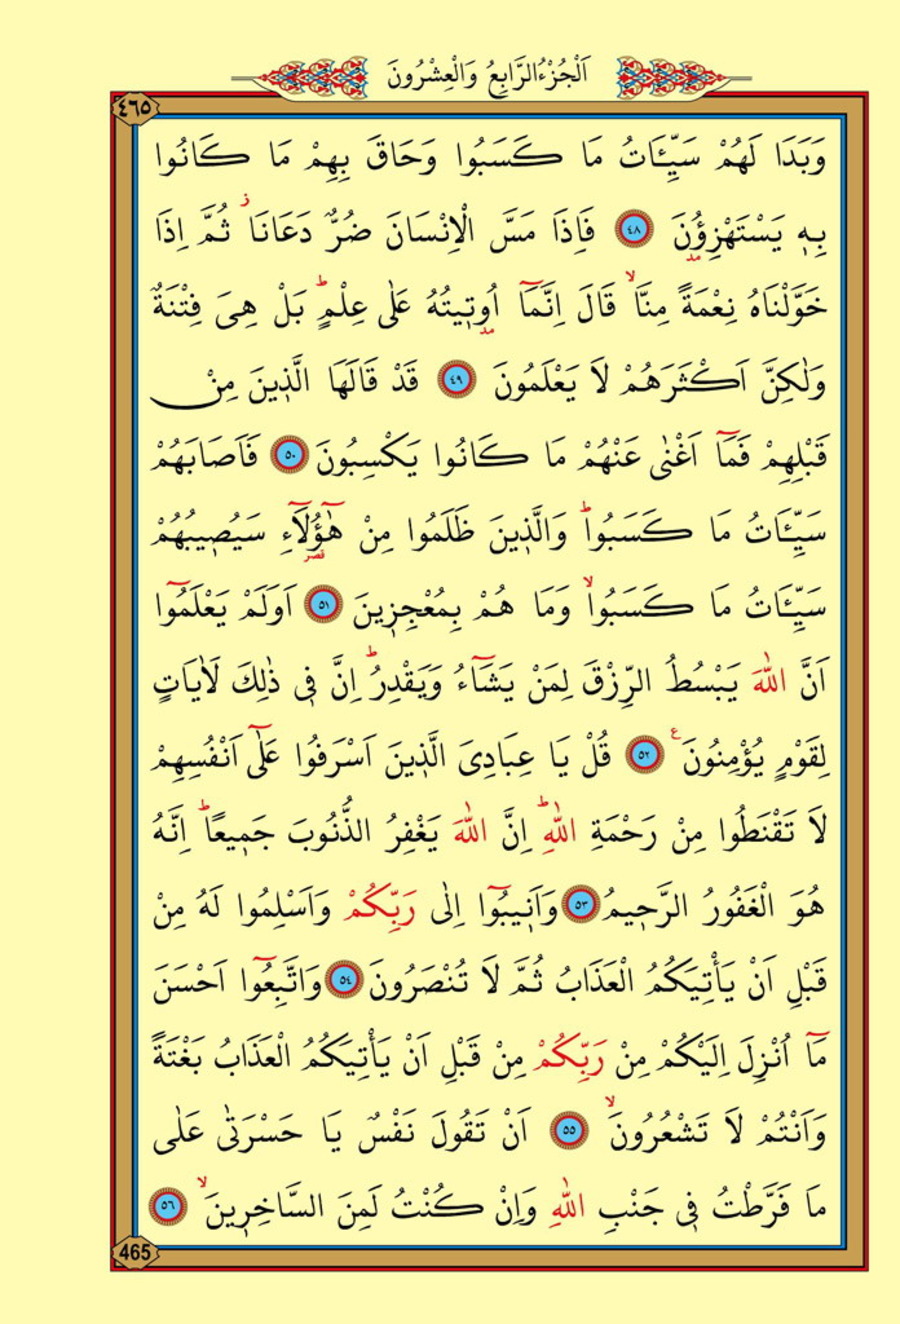 اَلْجُزْءُ الرَّابِعُ وَالْعِشْرُونَ
٤٦٥
وَبَدَا لَهُمْ سَيِّـَٔاتُ مَا كَسَبُوا وَحَاقَ بِهِمْ مَا كَانُوا
بِهٖ يَسْتَهْزِؤُنَ ﴿٤٨﴾ فَاِذَا مَسَّ الْاِنْسَانَ ضُرٌّ دَعَانَاۘ ثُمَّ اِذَا
خَوَّلْنَاهُ نِعْمَةً مِنَّاۙ قَالَ اِنَّمَٓا اُوتٖيتُهُ عَلٰى عِلْمٍۜ بَلْ هِىَ فِتْنَةٌ
وَلٰكِنَّ اَكْثَرَهُمْ لَا يَعْلَمُونَ ﴿٤٩﴾ قَدْ قَالَهَا الَّذٖينَ مِنْ
قَبْلِهِمْ فَمَٓا اَغْنٰى عَنْهُمْ مَا كَانُوا يَكْسِبُونَ ﴿٥٠﴾ فَاَصَابَهُمْ
سَيِّـَٔاتُ مَا كَسَبُواۜ وَالَّذٖينَ ظَلَمُوا مِنْ هٰٓؤُلَٓاءِ سَيُصٖيبُهُمْ
سَيِّـَٔاتُ مَا كَسَبُواۙ وَمَا هُمْ بِمُعْجِزٖينَ ﴿٥١﴾ اَوَلَمْ يَعْلَمُٓوا
اَنَّ اللّٰهَ يَبْسُطُ الرِّزْقَ لِمَنْ يَشَٓاءُ وَيَقْدِرُۜ اِنَّ فٖى ذٰلِكَ لَاٰيَاتٍ
لِقَوْمٍ يُؤْمِنُونَ ع ﴿٥٢﴾ قُلْ يَا عِبَادِىَ الَّذٖينَ اَسْرَفُوا عَلٰٓى اَنْفُسِهِمْ
لَا تَقْنَطُوا مِنْ رَحْمَةِ اللّٰهِۜ اِنَّ اللّٰهَ يَغْفِرُ الذُّنُوبَ جَمٖيعًاۜ اِنَّهُ
هُوَ الْغَفُورُ الرَّحٖيمُ ﴿٥٣﴾ وَاَنٖيبُٓوا اِلٰى رَبِّكُمْ وَاَسْلِمُوا لَهُ مِنْ
قَبْلِ اَنْ يَأْتِيَكُمُ الْعَذَابُ ثُمَّ لَا تُنْصَرُونَ ﴿٥٤﴾ وَاتَّبِعُٓوا اَحْسَنَ
مَٓا اُنْزِلَ اِلَيْكُمْ مِنْ رَبِّكُمْ مِنْ قَبْلِ اَنْ يَأْتِيَكُمُ الْعَذَابُ بَغْتَةً
وَاَنْتُمْ لَا تَشْعُرُونَۙ ﴿٥٥﴾ اَنْ تَقُولَ نَفْسٌ يَا حَسْرَتٰى عَلٰى
مَا فَرَّطْتُ فٖى جَنْبِ اللّٰهِ وَاِنْ كُنْتُ لَمِنَ السَّاخِرٖينَۙ ﴿٥٦﴾
465